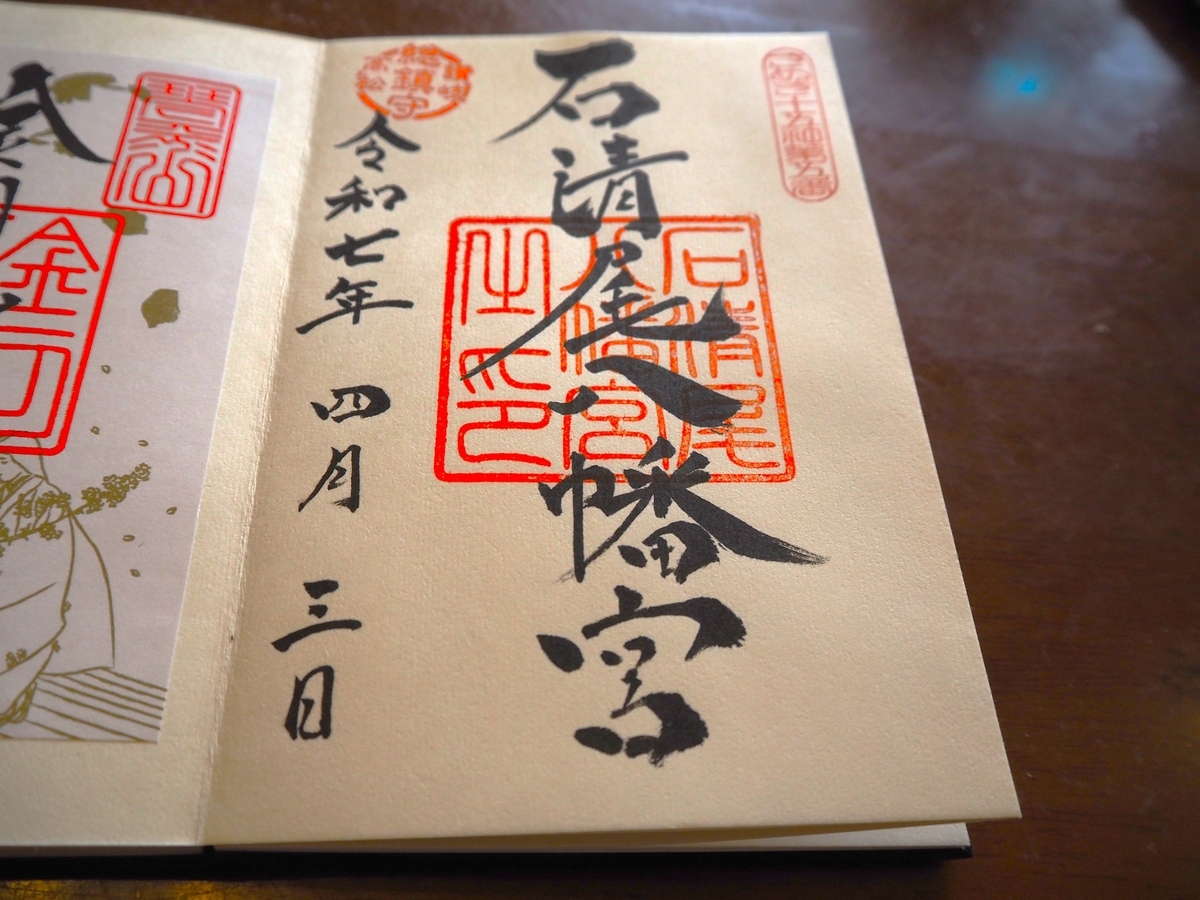 石清尾八幡宮
石清尾
八幡宮
之印
讃岐
総鎮守
高松
令和七年 四月 三日
金刀